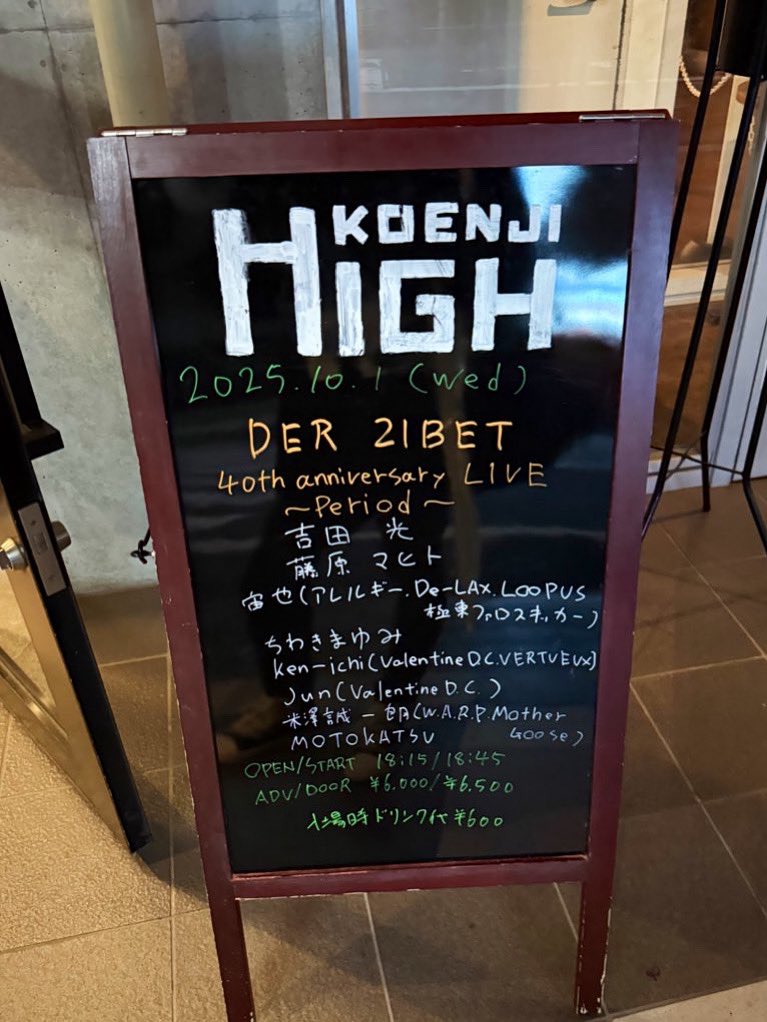 KOENJI
HIGH
2025.10.1 (wed)
DER ZIBET
40th anniversary LIVE
～Period～
吉田 光
藤原 マヒト
宙也(アレルギー.De-LAX.LOOPUS
極東ファロスキッカー)
ちわきまゆみ
ken-ichi(Valentine D.C.VERTUEUX)
Jun(Valentine D.C.)
米澤誠一朗(W.A.R.P.Mother
Goose)
MOTOKATSU
OPEN/START 18:15/18:45
ADV/DOOR ¥6.000/¥6.500
入場時ドリンク代¥600